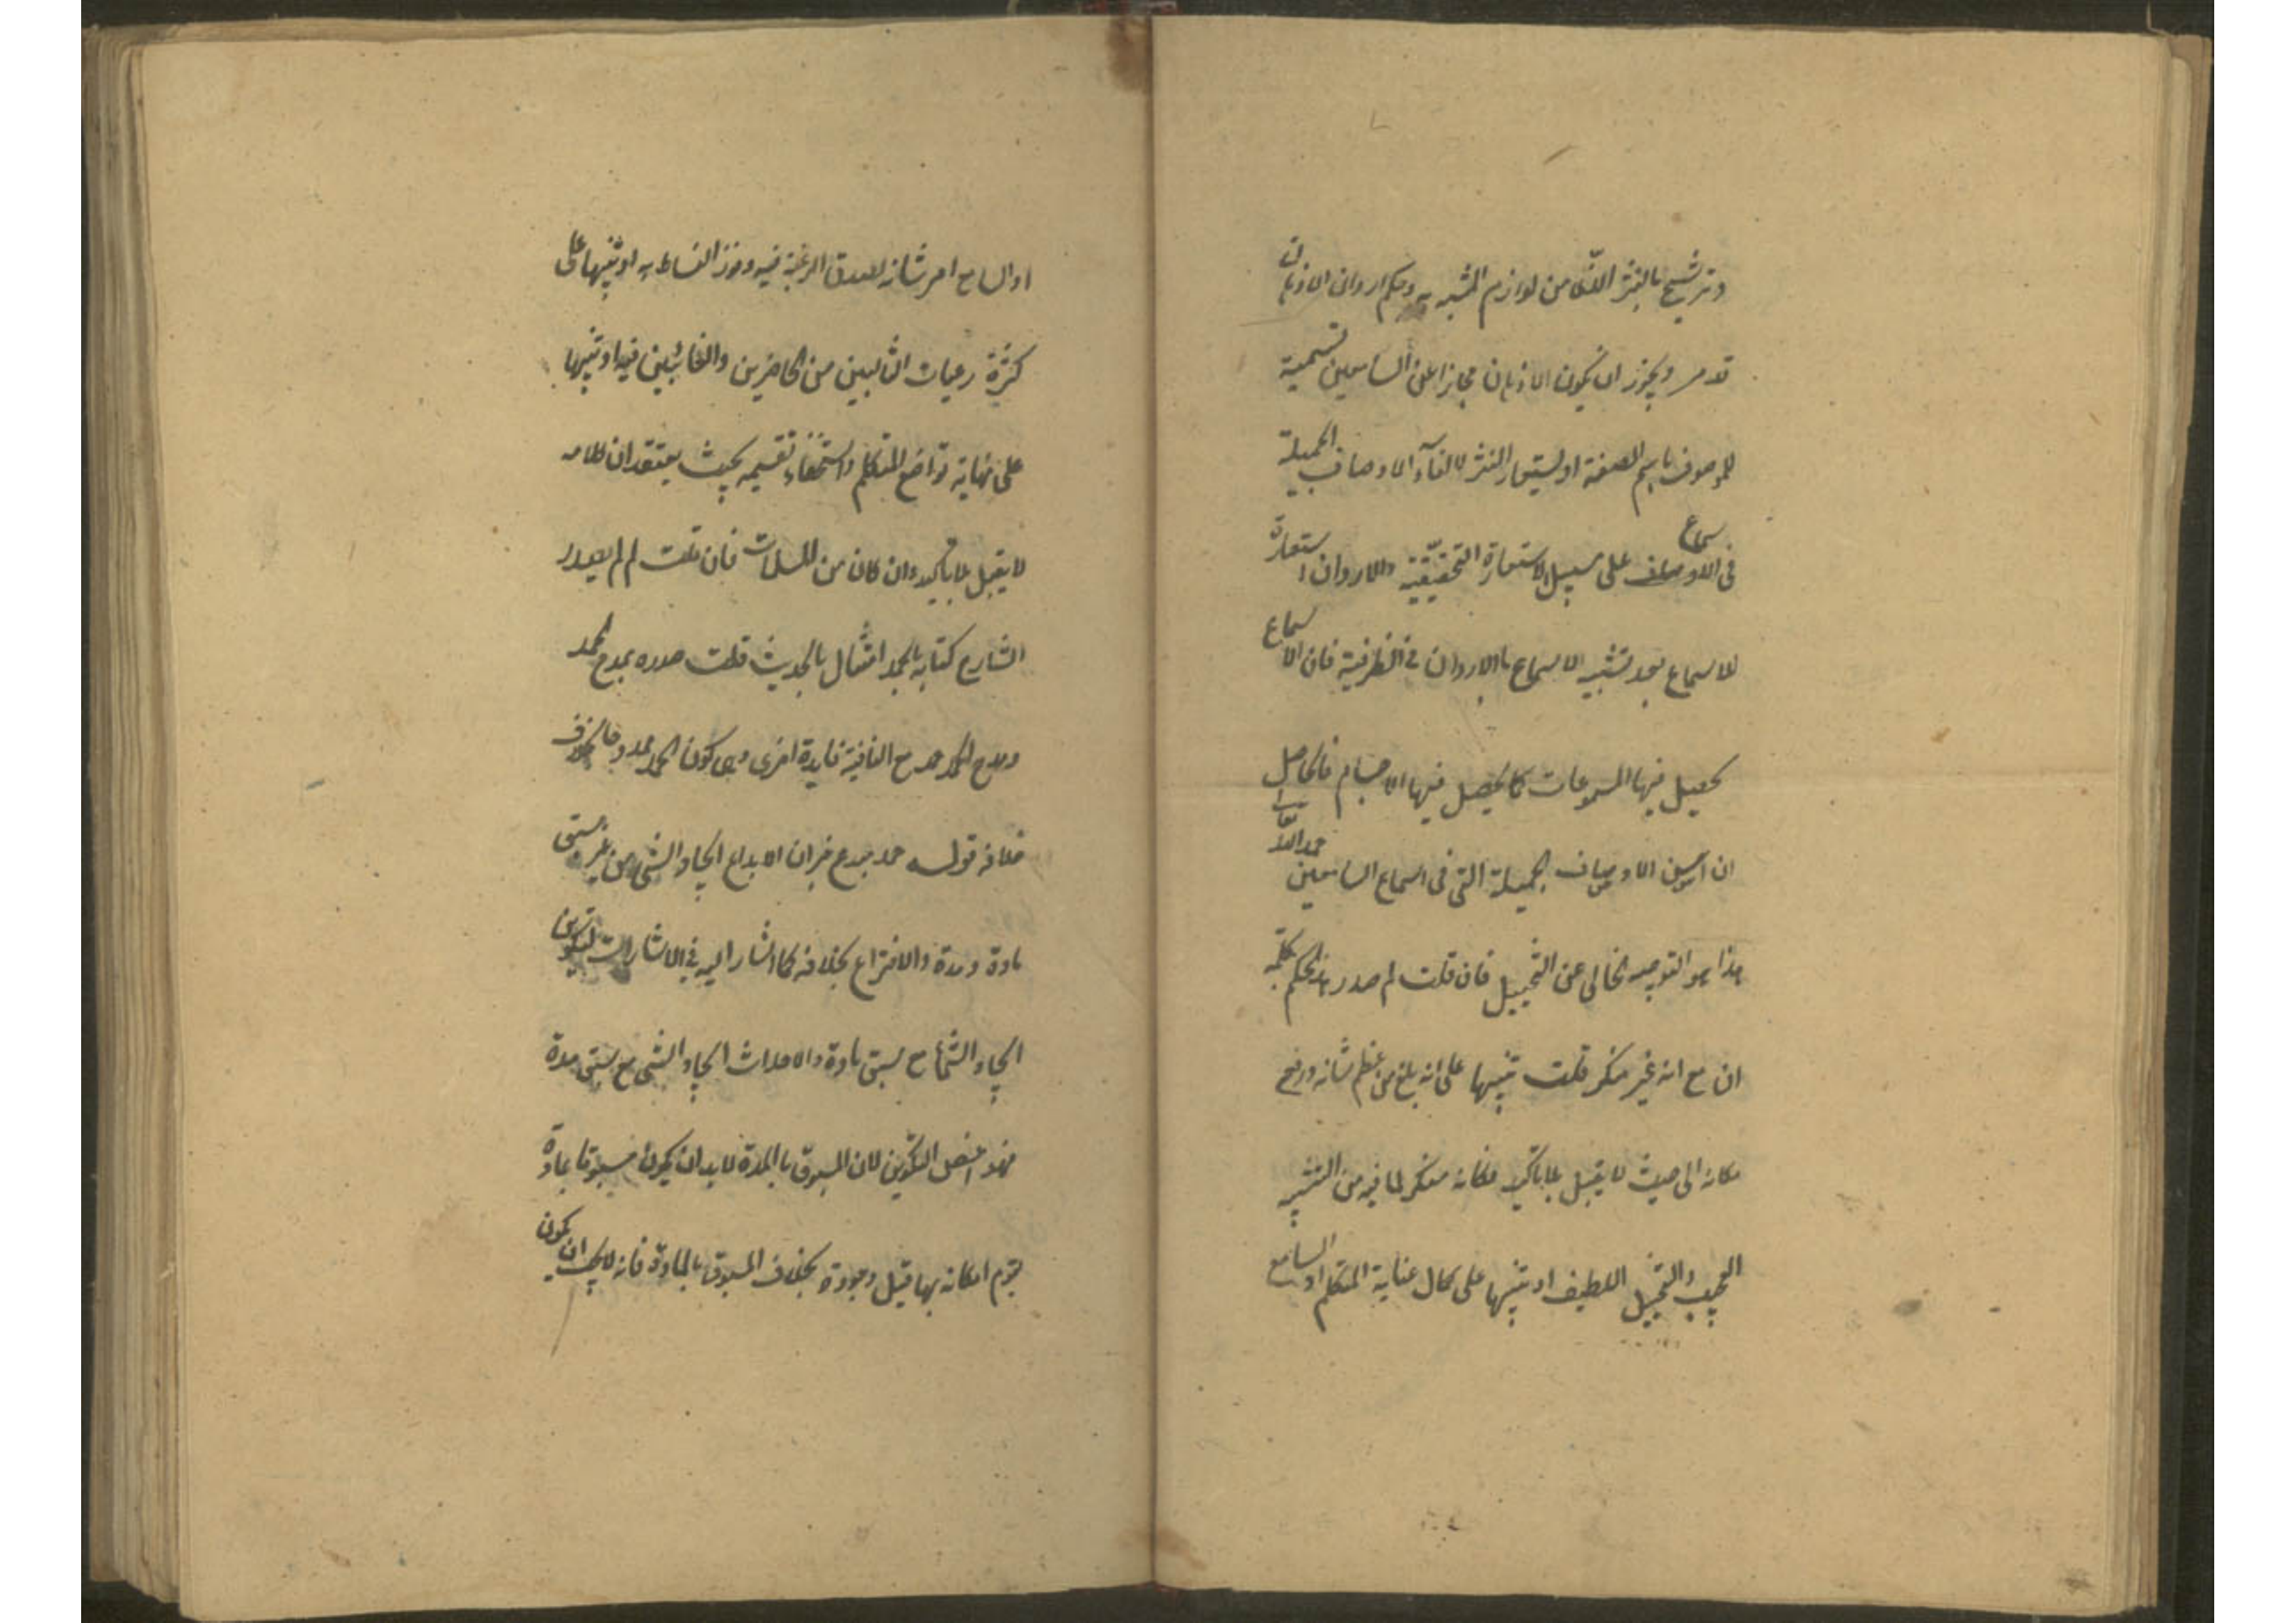 وترشيح بالنثر الذى من لوازم المشبه به وحكم اردان الاذهان
قد مر ويجوز ان يكون الاذهان مجازا عن السامعين تسمية
للموصوف باسم الصفة او يستعار النثر لالقاء الاوصاف الجميلة
فى الاوصاف سماع على سبيل الاستعارة التحقيقية والاردان استعارة
للاسماع بعد تشبيه الاسماع بالاردان فى الظرفية فان الاسماع
يحصل فيها المسموعات كما يحصل فيها الاجسام فالحاصل
ان احسن الاوصاف الجميلة التى فى اسماع السامعين حمد الله تعالى
هذا هو التوجيه الخالى عن التخييل فان قلت لم صدر هذا الحكم بكلمة
ان مع انه غير منكر قلت تنبيها على انه بلغ من عظم شانه ورفع
مكانه الى حيث لا يقبل بلا تاكيد فكانه منكر لما فيه من التشبيه
العجيب والتخييل اللطيف او تنبيها على كمال عناية المتكلم او السامع
او السامع امر شانه لصدق الرغبة فيه وفوز النشاط به او تنبيها على
كثرة رغبات الطالبين من الحاضرين والغائبين فيه او تنبيها
على نهاية تواضع المتكلم نفسه بحيث يعتقد ان كلامه
لا يقبل بلا تاكيد وان كان من المسلمات فان قلت لم لم يصدر
الشارح كتابه بالحمد امتثالا بالحديث قلت صدره بمدح الحمد
ومدح الحمد حمد مع النافية فايدة اخرى وهى كون الحمد حمد
قوله حمد مبدع خبر ان الابداع ايجاد الشئ من غير سبق
مادة ومدة والاختراع بخلافه كما اشار اليه فى الاشارات التكوين
ايجاد الشئ مع سبق مادة والاحداث ايجاد الشئ مع سبق مدة
فهو اخص التكوين لان المسبوق بالمدة لابد ان يكون مسبوقا بمادة
امكانه بها قبل وجوده بخلاف المسبوق بالمادة فانه لا يجب ان يكون